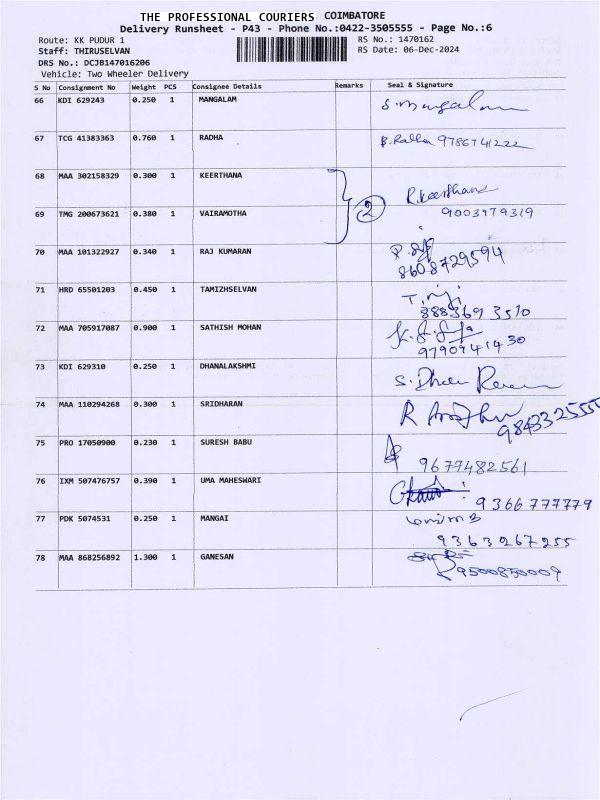 THE PROFESSIONAL COURIERS COIMBATORE
Delivery Runsheet - P43 - Phone No.:0422-3505555 - Page No.:6
Route: KK PUDUR 1
RS No.: 1470162
Staff: THIRUSELVAN
RS Date: 06-Dec-2024
DRS No.: DCJB147016206
Vehicle: Two Wheeler Delivery
S No Consignment No Weight PCS Consignee Details Remarks Seal & Signature
66 KDI 629243 0.250 1 MANGALAM S. Mangalam
67 TCG 41383363 0.760 1 RADHA B. Radha 9786741222
68 MAA 302158329 0.300 1 KEERTHANA R. Keerthana
2
69 TMG 200673621 0.380 1 VAIRAMOTHA 9003979319
70 MAA 101322927 0.340 1 RAJ KUMARAN
8608729594
71 HRD 65501203 0.450 1 TAMIZHSELVAN
888369 3510
72 MAA 705917087 0.900 1 SATHISH MOHAN
9790941430
73 KDI 629310 0.250 1 DHANALAKSHMI S. Dhan
74 MAA 110294268 0.300 1 SRIDHARAN R
984332555
75 PRO 17050900 0.230 1 SURESH BABU
9677482561
76 IXM 507476757 0.390 1 UMA MAHESWARI
9366777779
77 PDK 5074531 0.250 1 MANGAI
9363267255
78 MAA 868256892 1.300 1 GANESAN
9500850009